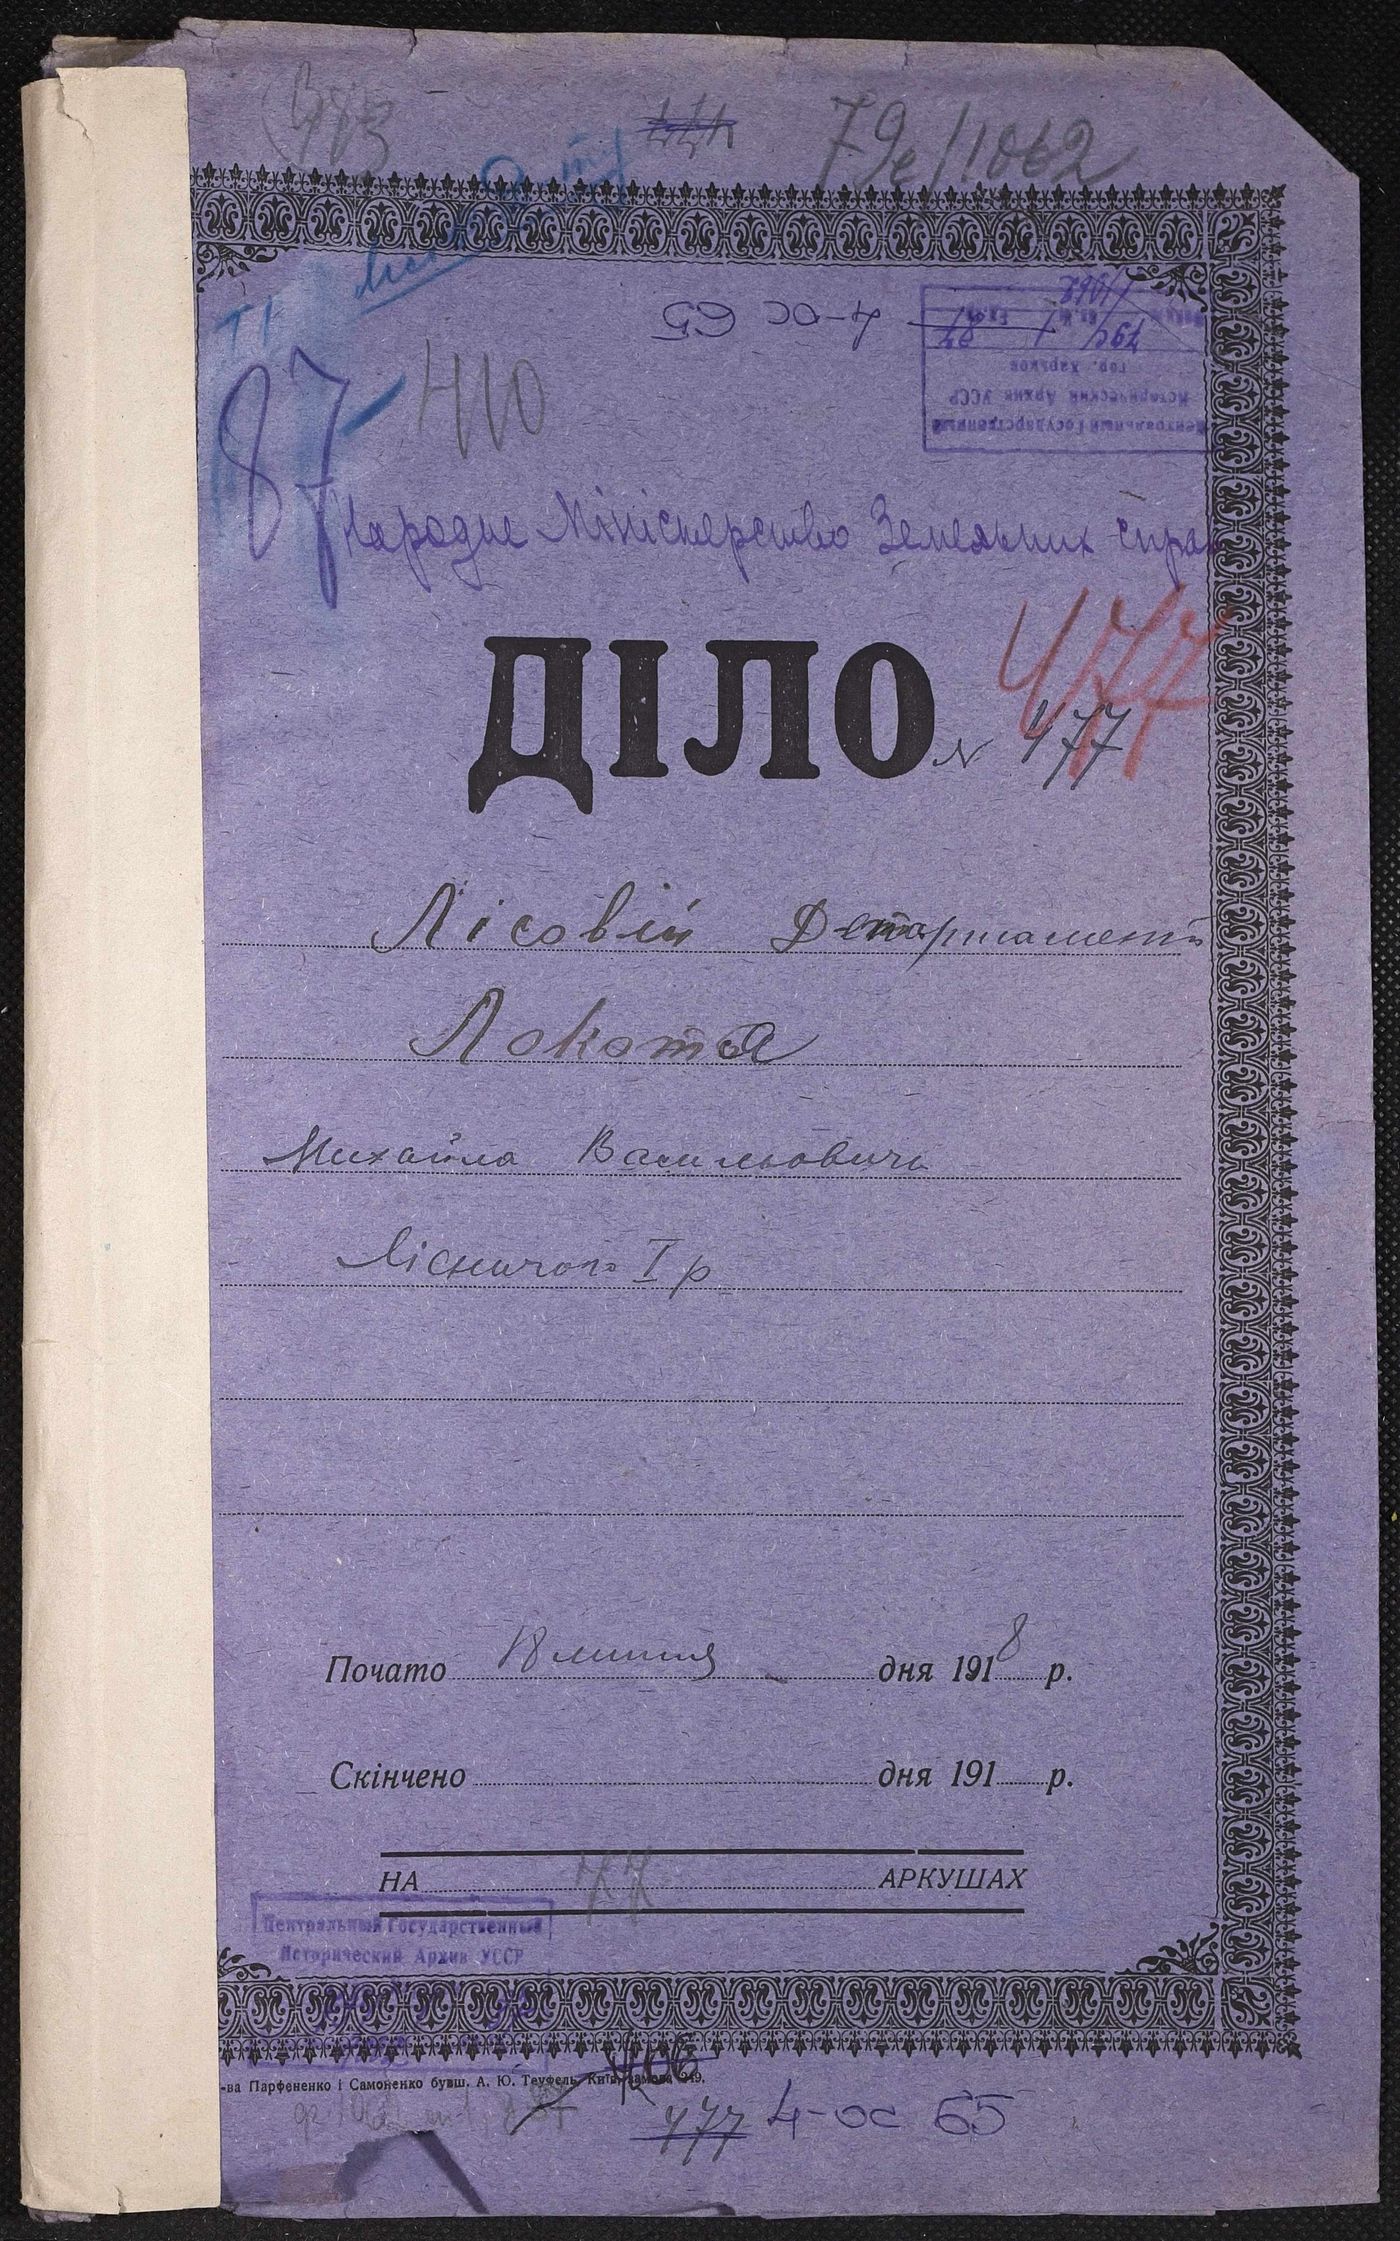 79с/1062
4-ос 65
Центральный Государственный
Исторический Архив УССР
гор. Харьков
87
410
Народне Міністерство Земельних справ
477
ДІЛО
N 477
Лісовий Департамент
Локотя
Михайла Васильовича
Лісничого I р
Почато 18 липня дня 1918 р.
Скінчено дня 191 р.
НА 77 АРКУШАХ
Центральный Государственный
Исторический Архив УССР
-ва Парфененко і Самоненко бувш. А. Ю. Теуфель, Київ, замова 249.
477 4-ос 65